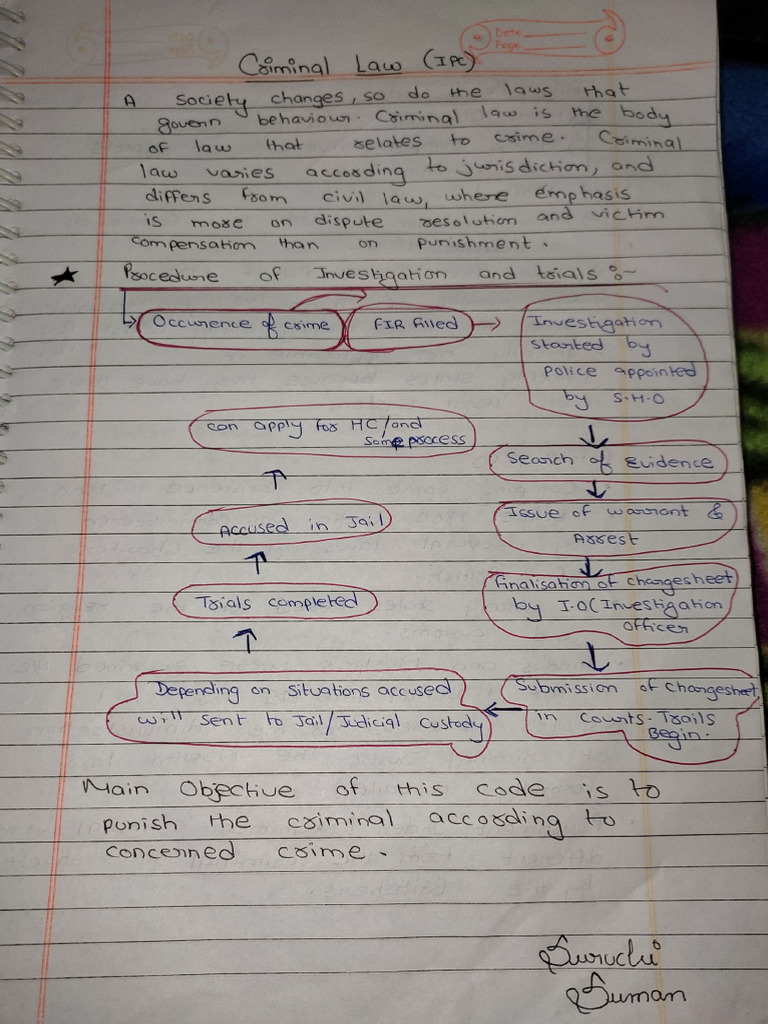 Date
Page
Criminal Law (IPC)
A society changes, so do the laws that
govern behaviour. Criminal law is the body
of law that relates to crime. Criminal
law varies according to jurisdiction, and
differs from civil law, where emphasis
is more on dispute resolution and victim
compensation than on punishment.
Procedure of Investigation and trials :-
Occurence of crime
FIR filled
Investigation
started by
police appointed
by S.H.O
Search of Evidence
Issue of warrant &
Arrest
Finalisation of chargesheet
by I.O (Investigation
officer
Submission of chargesheet
in counts. Trails
Begin.
Depending on situations accused
will sent to Jail/Judicial custody
Trials completed
Accused in Jail
can apply for HC/and
some process
Main Objective of this code is to
punish the criminal according to
concerned crime.
Suruchi
Suman